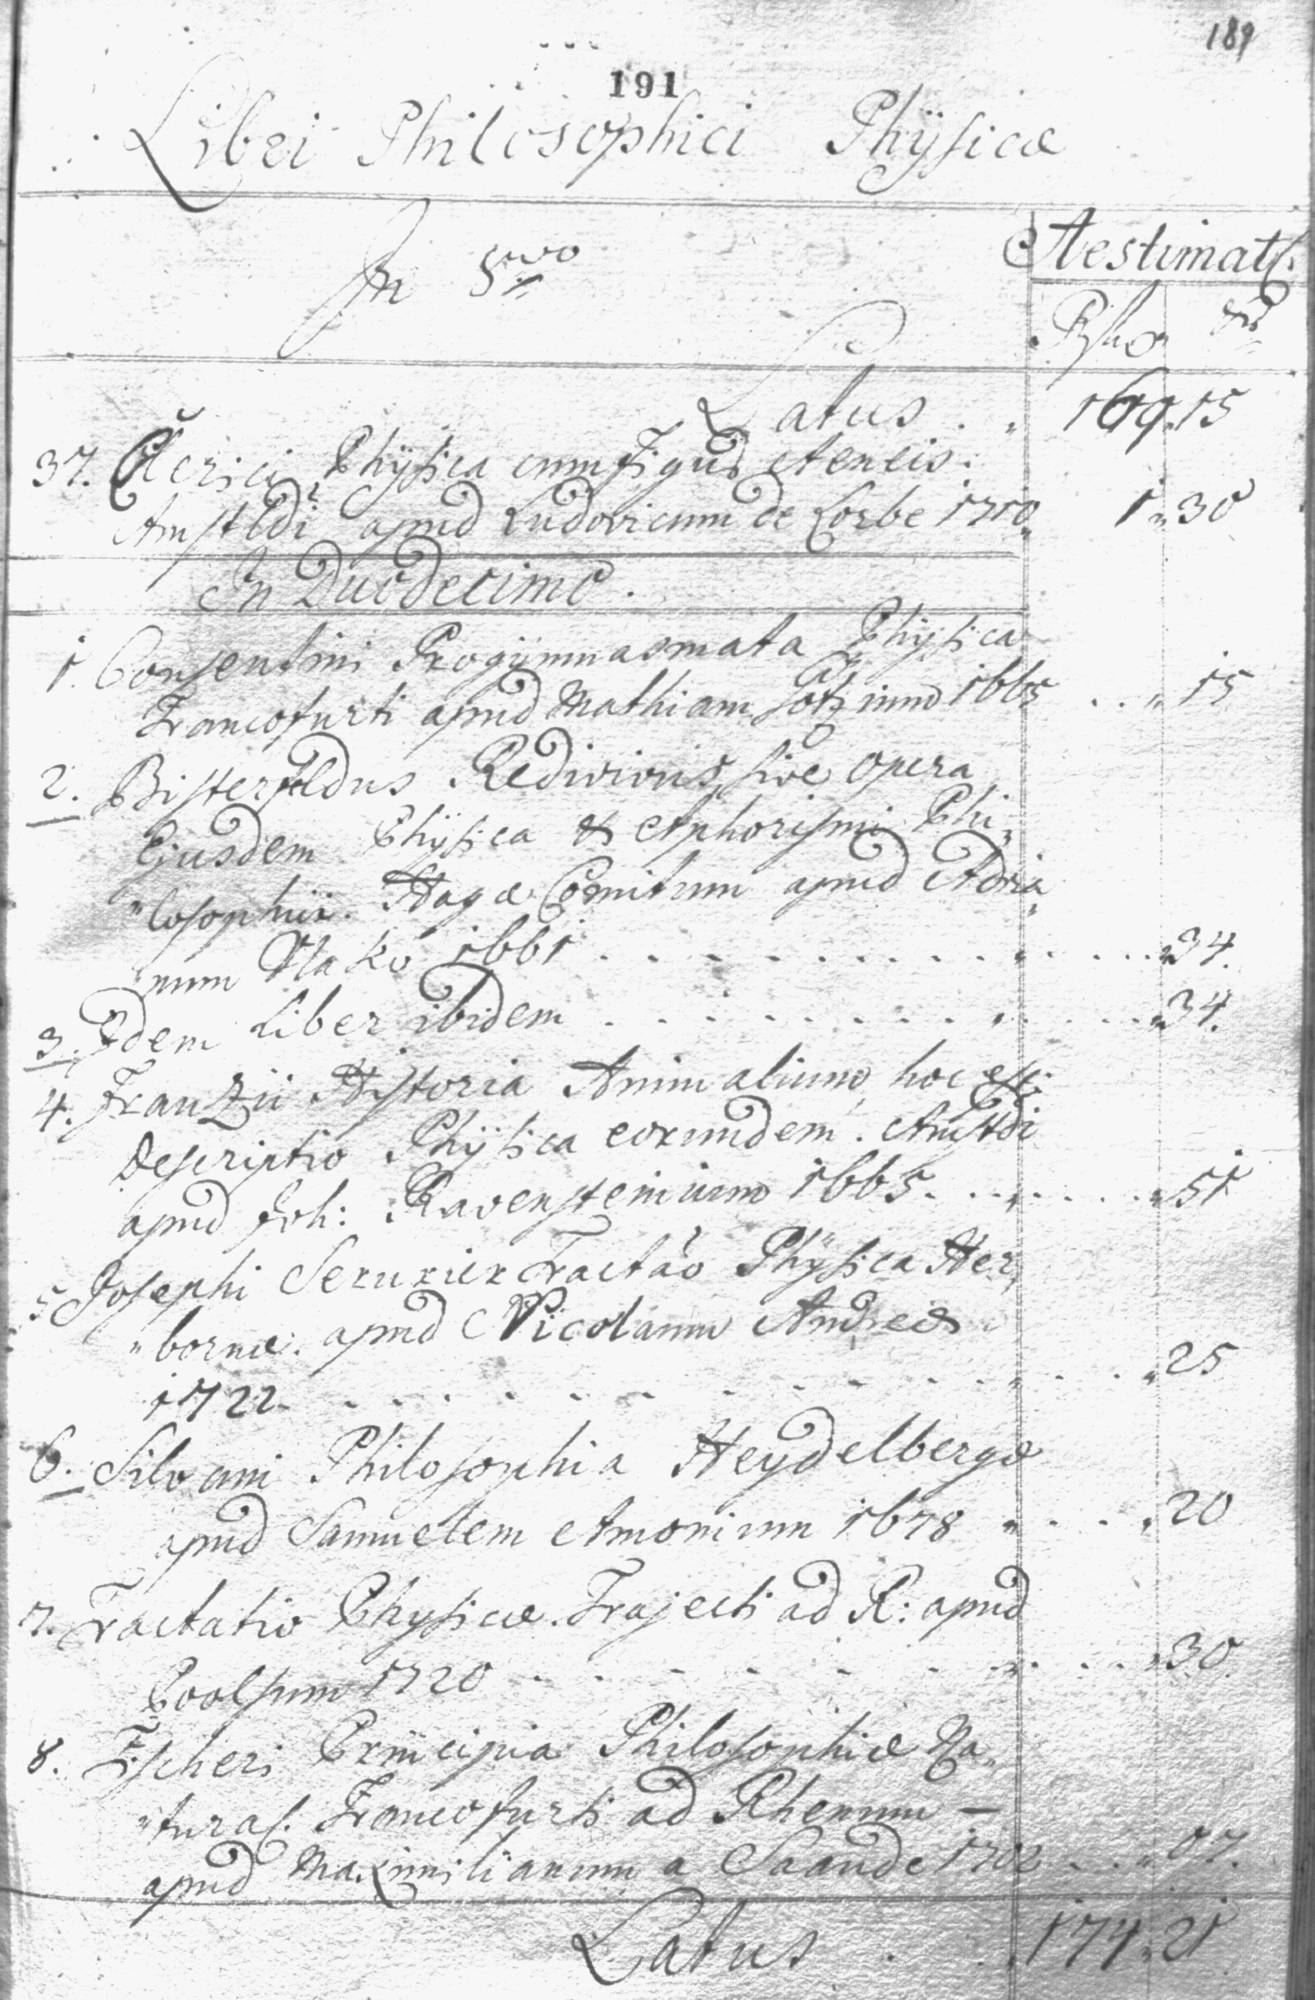 189
191
Libri Philosophici Physicæ
Aestimat.
In 8tavo
Latus . . 169. 15
37. Clerici Physica cum figuris Aeneis.
Amstldi apud Ludovicum de Lorbe 1710 1 „ 30
In Duodecimo.
1. Consentini Progÿmnasmata Phÿsica
Francofurti apud Mathiam Götzium 1665 . . „ 15
2. Bisterfeldus Redivivus, sive opera
Ejusdem Phÿsica & Aphorismi Phi„
„losophici. Hagæ Comitum apud Adria„
„num Vlakō 1661 . . . . „ 34.
3. Idem Liber ibidem . . . . „ 34.
4. Franzii Historia Animalium, hoc est:
Descriptio Phÿsica eorumdem. Amstdi
apud Joh: Ravensteinium 1665. . . . „ 51
5 Josephi Serurier Tractaō Phÿsica Her„
„bornæ. apud Nicolaum Andreæ
1722. . . . „ 25
6. Silvani Philosophia Heydelbergæ
apud Samuelem Amonium 1678 „ . . . „ 20
7. Tractatio Physicæ. Trajecti ad R: apud
Poolsum 1720 . . . . „ 30
8. Principia Philosophiæ Na„
„tural. Francofurti ad Rhenum —
apud Maximilianum a Saande 1702 . . . „ 07.
Latus . . 174. 21